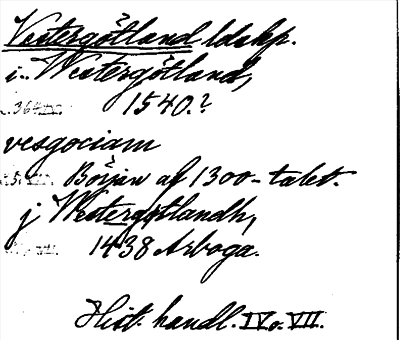 Vestergötland ldskp.
i Westergötland,
1540.?
vesgociam
Början af 1300-talet.
j Westergötlandh,
1438 Arboga.
Hist. handl. IV o. VII.